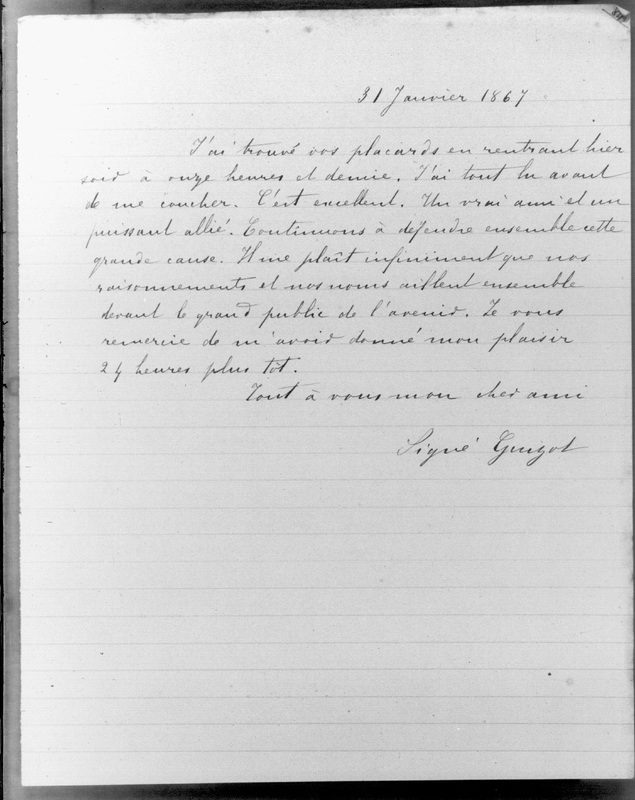 31 Janvier 1867
J'ai trouvé vos placards en rentrant hier
soir à onze heures et demie. J'ai tout lu avant
de me coucher. C'est excellent. Un vrai ami et un
puissant allié. Continuons à défendre ensemble cette
grande cause. Il me plaît infiniment que nos
raisonnements et nos noms aillent ensemble
devant le grand public de l'avenir. Je vous
remercie de m'avoir donné mon plaisir
24 heures plus tot.
Tout à vous mon cher ami
Signé Guizot